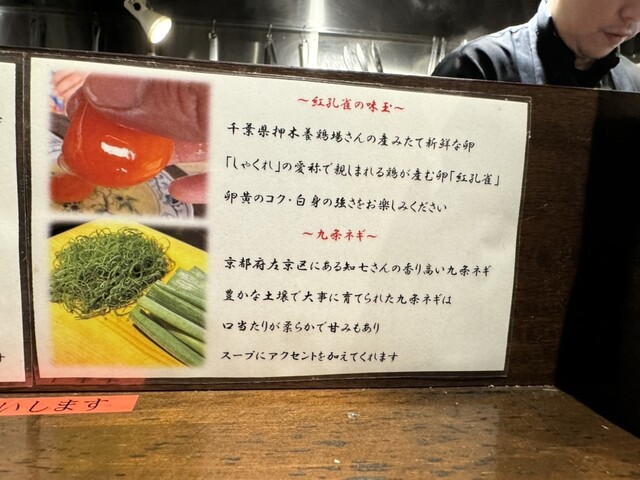 ～紅孔雀の味玉～
千葉県押木養鶏場さんの産みたて新鮮な卵
「しゃくれ」の愛称で親しまれる鶏が産む卵「紅孔雀」
卵黄のコク・白身の強さをお楽しみください
～九条ネギ～
京都府左京区にある知七さんの香り高い九条ネギ
豊かな土壌で大事に育てられた九条ネギは
口当たりが柔らかで甘みもあり
スープにアクセントを加えてくれます
いします